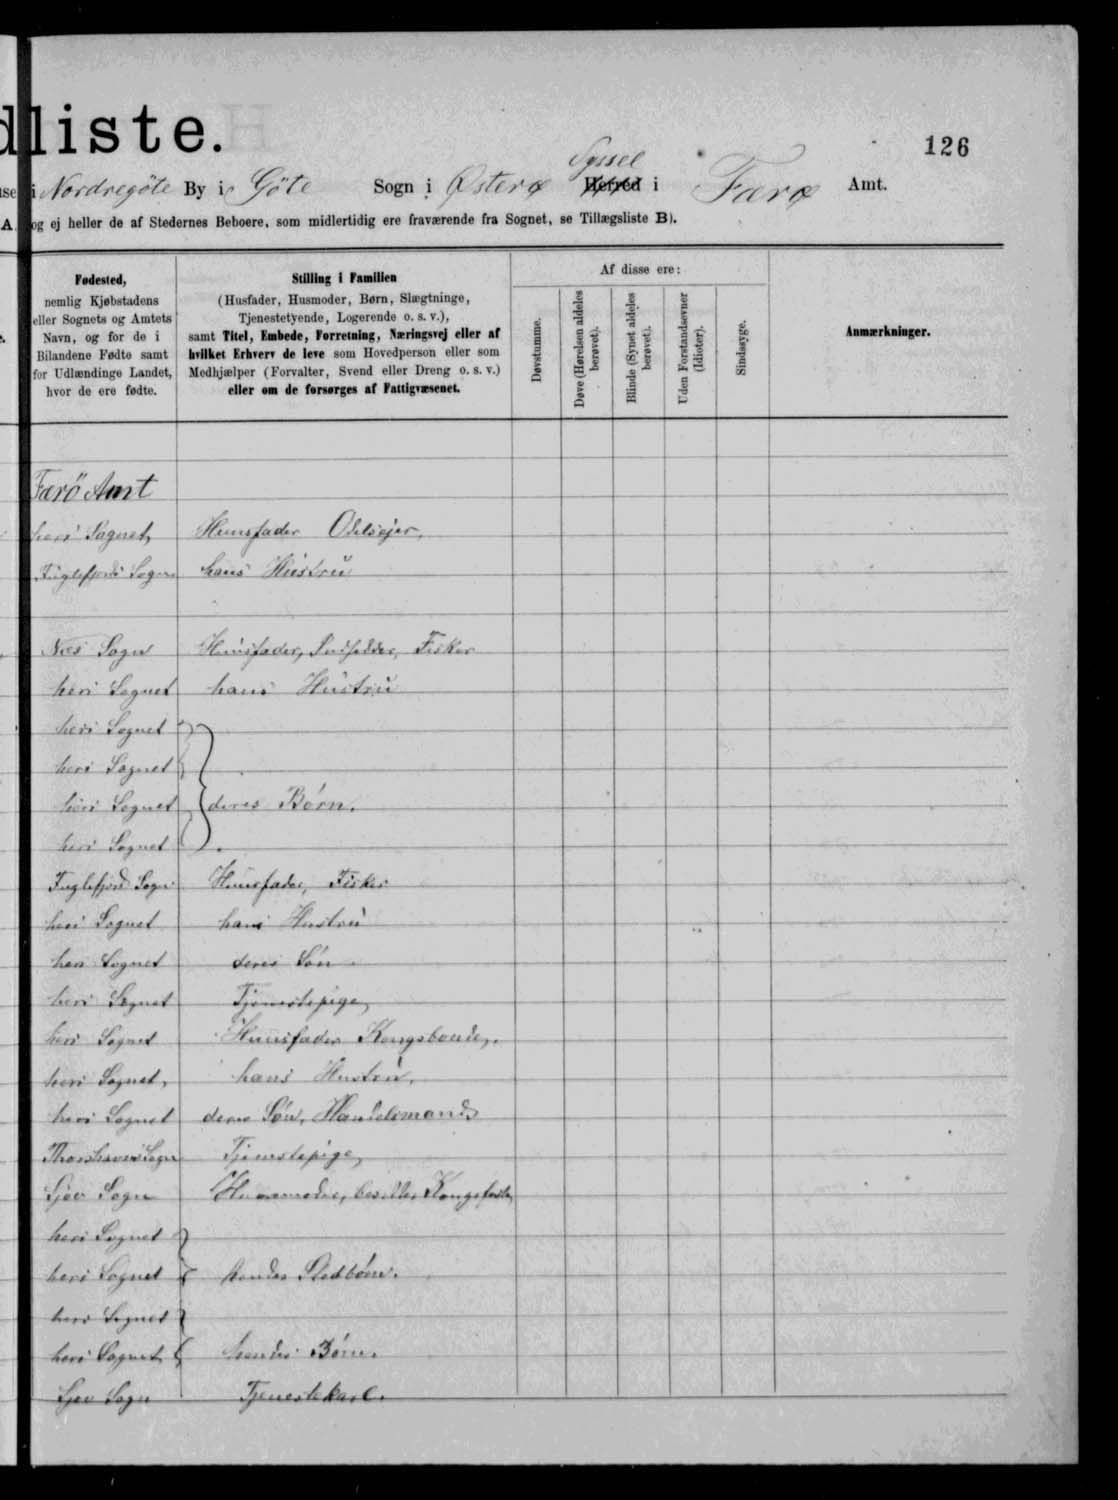 dliste.
126
Syssel
use i Nordregöte By i Göte Sogn i Østerø Herred i Færø Amt.
A og ej heller de af Stedernes Beboere, som midlertidig ere fraværende fra Sognet, se Tillægsliste B).
Fødested,
nemlig Kjøbstadens
eller Sognets og Amtets
Navn, og for de i
Bilandene Fødte samt
for Udlændinge Landet,
hvor de ere fødte.
Stilling i Familien
(Husfader, Husmoder, Børn, Slægtninge,
Tjenestetyende, Logerende o. s. v.),
samt Titel, Embede, Forretning, Næringsvej eller af
hvilket Erhverv de leve som Hovedperson eller som
Medhjælper (Forvalter, Svend eller Dreng o. s. v.)
eller om de forsørges af Fattigvæsenet.
Af disse ere:
Døvstumme.
Døve (Hørelsen aldeles
berøvet).
Blinde (Synet aldeles
berøvet).
Uden Forstandsevner
(Idioter).
Sindssyge.
Anmærkninger.
Færö Amt
heri Sognet, Huusfader Odelsejer,
Fuglefjords Sogn hans Hustru
Næs Sogn Huusfader, Fisker
heri Sognet hans Hustru
heri Sognet
heri Sognet
heri Sognet deres Börn.
heri Sognet
Fuglefjord Sogn Huusfader, Fisker
heri Sognet hans Hustru
heri Sognet deres Sön
heri Sognet Tjenestepige,
heri Sognet Huusfader Kongsbonde,
heri Sognet, hans Hustru,
heri Sognet deres Sön, Handelsmand
Thorshavns Sogn Tjenestepige,
Sjov Sogn Huusmoder, besidder Kongsfæste,
heri Sognet
heri Sognet hendes Stedbörn.
heri Sognet
heri Sognet hendes Börn.
Sjov Sogn Tjenestekarl.